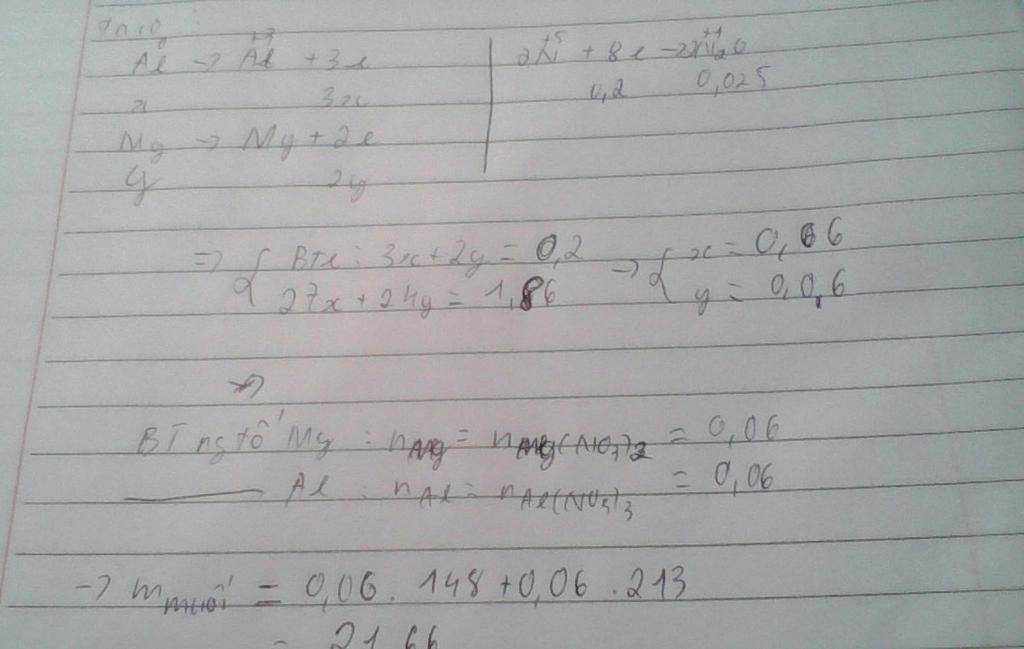 Al → Al +3e
+3
x 3x
Mg → Mg + 2e
y 2y
+5 +1
2N + 8e → N2O
0,2 0,025
=> { BTe : 3x + 2y = 0,2 → { x = 0,06
27x + 24y = 1,86 y = 0,0,6
=>
BT ng tố Mg : nMg = nMg(NO3)2 = 0,06
—— Al : nAl = nAl(NO3)3 = 0,06
→ mmuối = 0,06 . 148 + 0,06 . 213
= 21,66